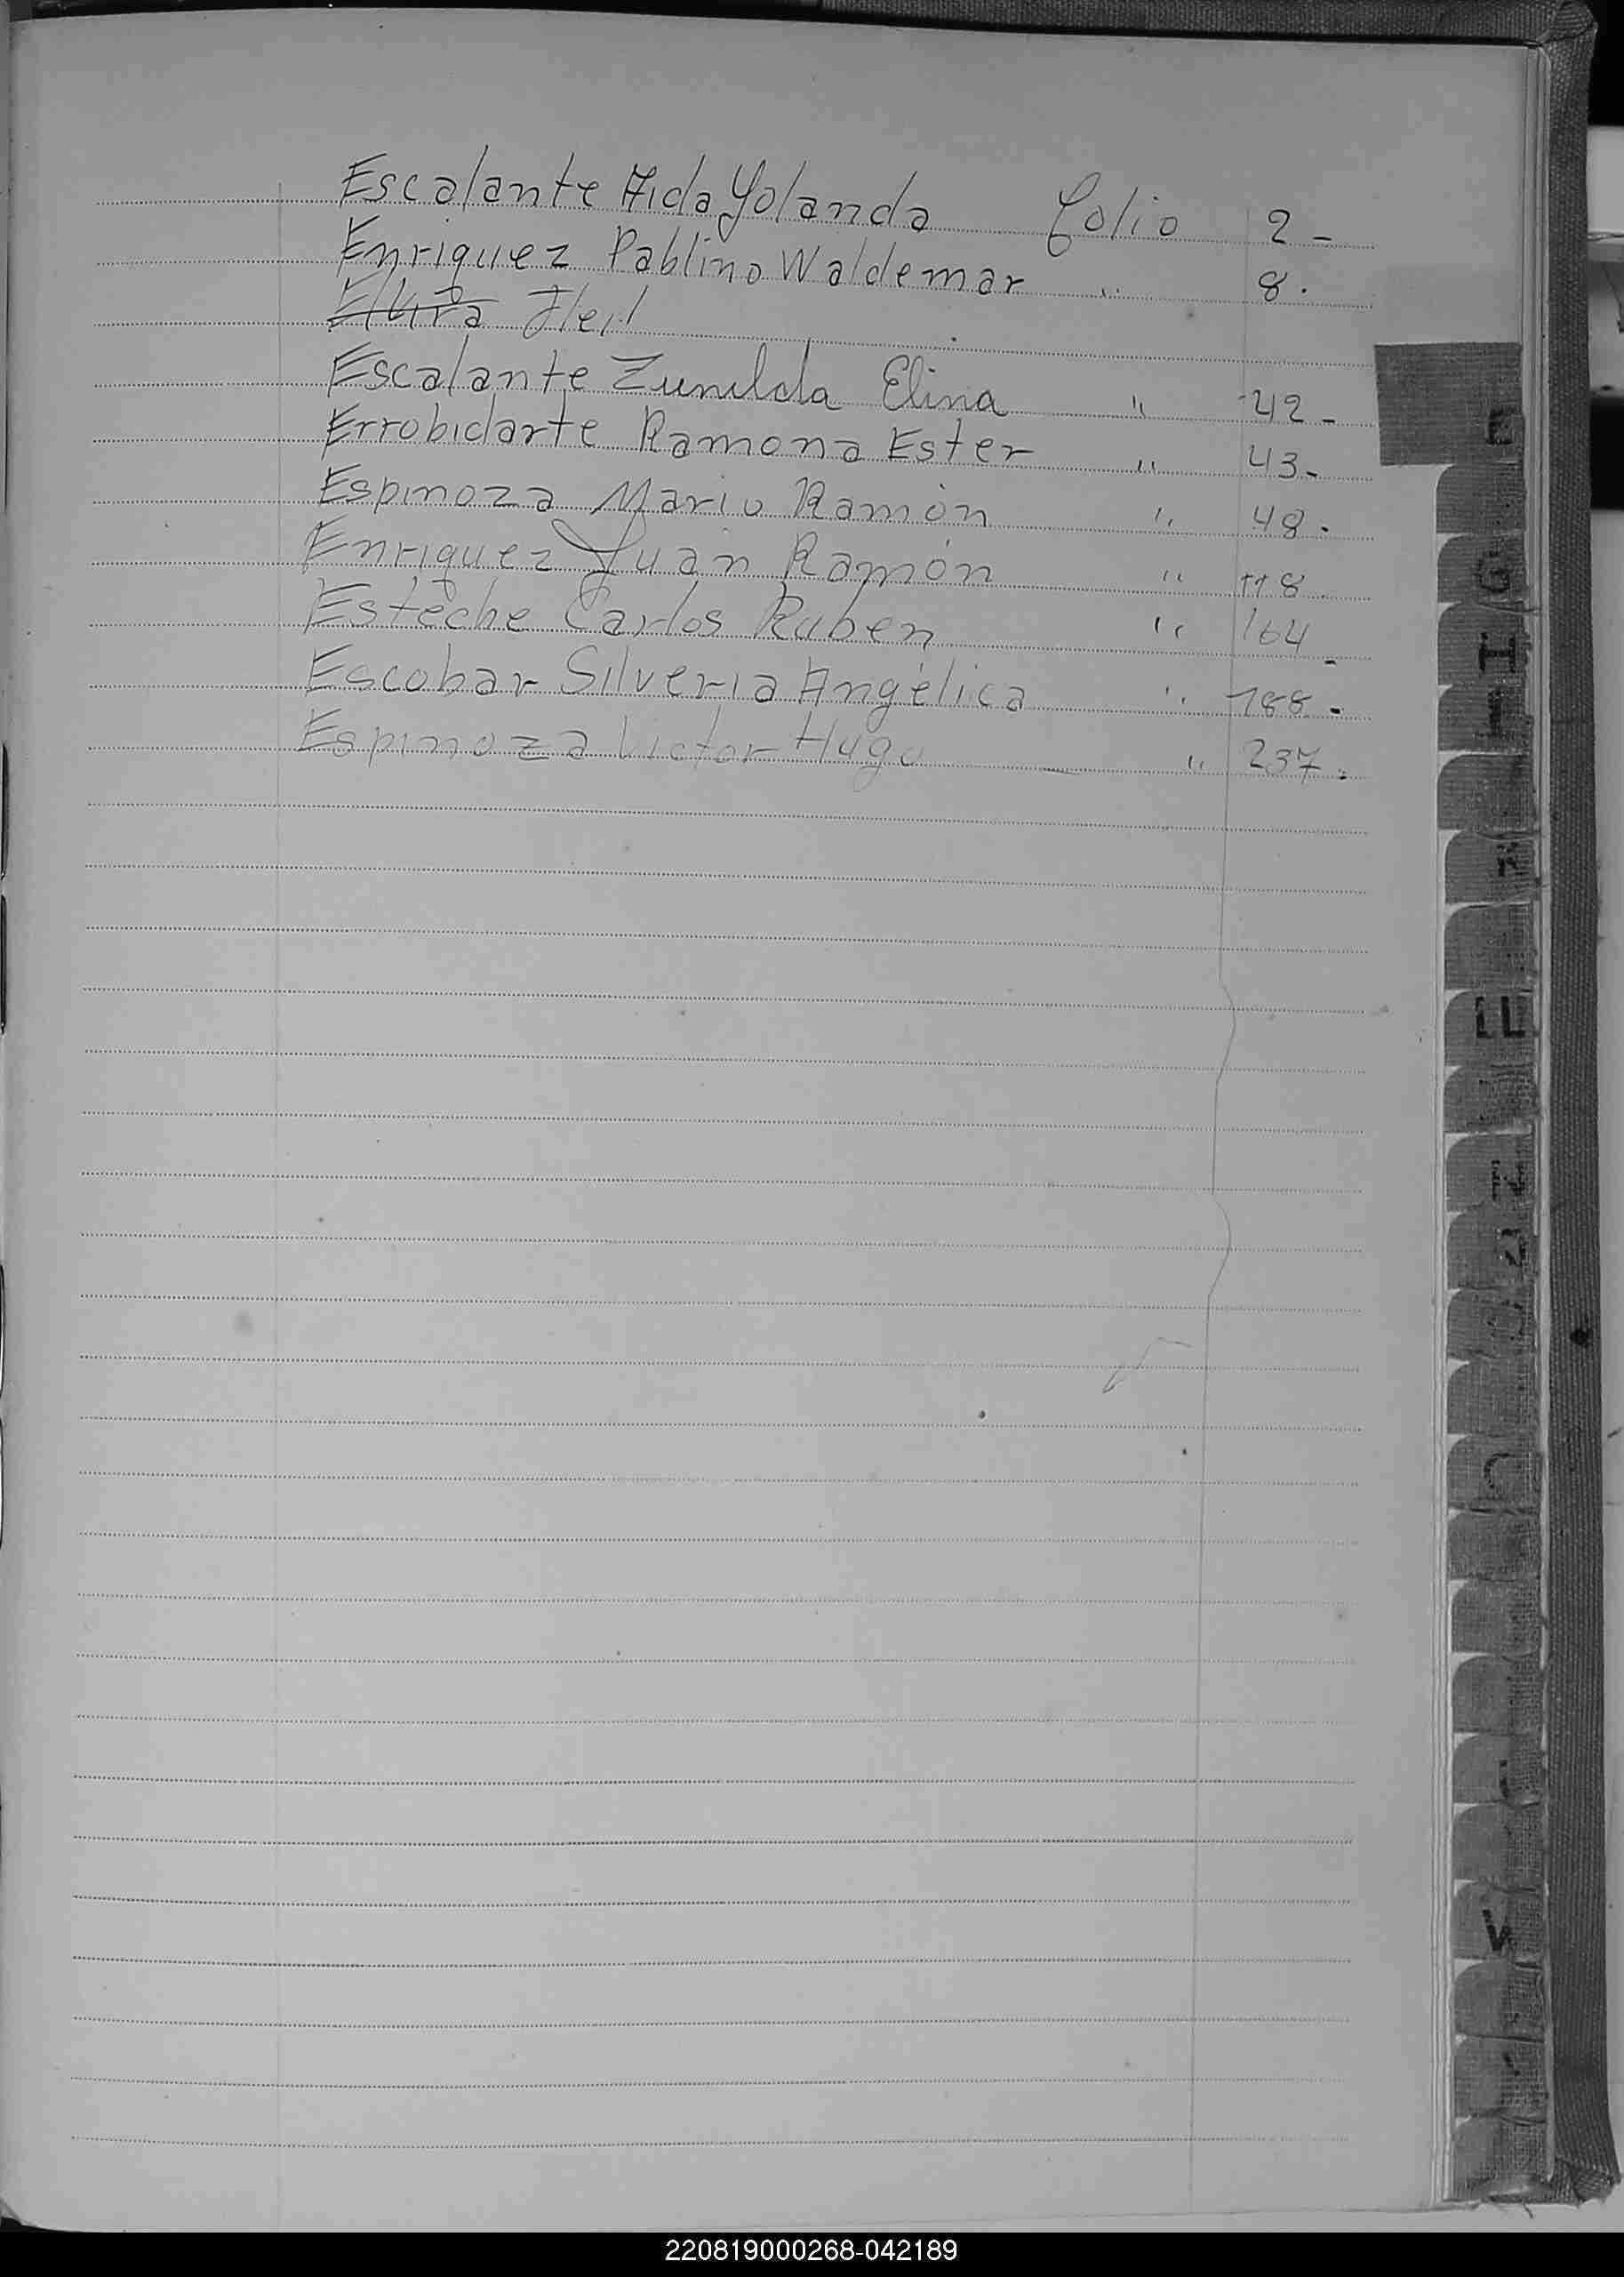 Escalante Aida Yolanda Folio 2-
Enriquez Pablino Waldemar " 8.
Elvira
Escalante Zunilda Elina " 42-
Errobidarte Ramona Ester " 43-
Espinoza Mario Ramón " 48.
Enriquez Juan Ramón " 118.
Esteche Carlos Ruben " 164-
Escobar Silveria Angélica " 188.
Espinoza Victor Hugo — " 237.
E
G
V
220819000268-042189